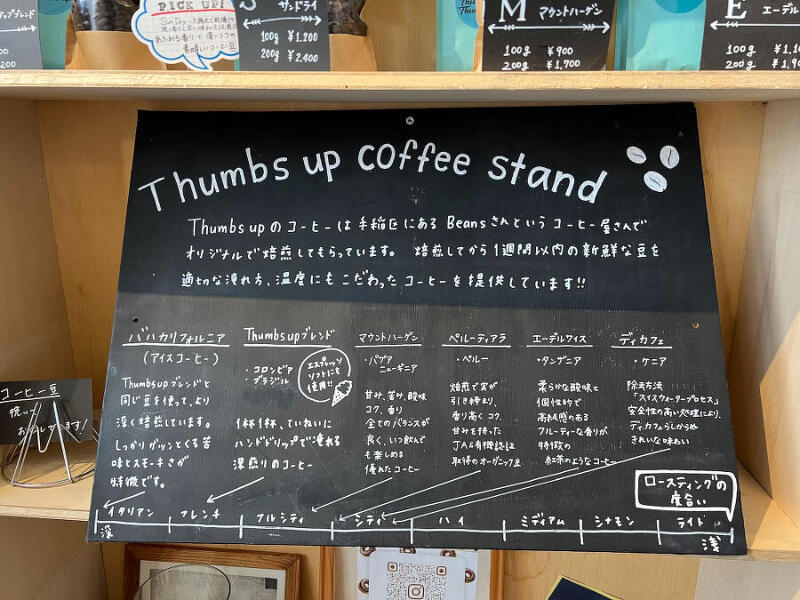 ップブレンド
PICK UP!
サンドライ
100g ¥1,200
200g ¥2,400
M マウントハーゲン
100g ¥900
200g ¥1,700
E エーデル
100g ¥1,1
200g
Thumbs up coffee stand
Thumbs upのコーヒーは手稲区にあるBeansさんというコーヒー屋さんで
オリジナルで焙煎してもらっています。 焙煎してから1週間以内の新鮮な豆を
適切な淹れ方、温度にもこだわったコーヒーを提供しています!!
バハカリフォルニア
(アイスコーヒー)
Thumbsupブレンドと
同じ豆を使って、より
深く焙煎しています。
しっかりグッとくる苦
味とスモーキさが
特徴です。
Thumbsupブレンド
・コロンビア
・ブラジル
エスプレッソ
ソフトにも
使用!!
1杯1杯、ていねいに
ハンドドリップで淹れる
深煎りのコーヒー
マウントハーゲン
・パプア
ニューギニア
甘み、苦み、酸味
コク、香り
全てのバランスが
良く、いつ飲んで
も楽しめる
優れたコーヒー
ペルーティアラ
・ペルー
焙煎で実が
引き締まり、
香り高く、コク、
甘みを持った
JAS有機認証
取得のオーガニック豆
エーデルワイス
・タンザニア
柔らかな酸味と
個性的で
高級感のある
フルーティーな香りが
特徴の
紅茶のようなコーヒー
ディカフェ
・ケニア
除去方法
「スイスウォータープロセス」
安全性の高い処理により、
ディカフェらしからぬ
きれいな味わい
ロースティングの
度合い
イタリアン フレンチ フルシティ シティ ハイ ミディアム シナモン ライト
深 浅
コーヒー豆